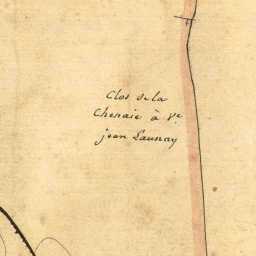 Clos de la
Chenaie à Ve
jean Launay